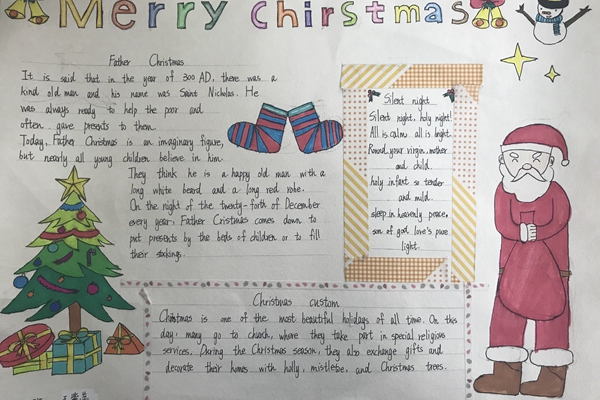 Merry Chirstmas
Father Christmas
It is said that in the year of 300 AD, there was a
kind old man and his name was Saint Nicholas. He
was always ready to help the poor and
often gave presents to them.
Today, Father Christmas is an imaginary figure,
but nearly all young children believe in him.
They think he is a happy old man with a
long white beard and a long red robe.
On the night of the twenty-forth of December
every year, Father Cristmas comes down to
put presents by the beds of children or to fill
their stockings.
Silent night
Silent night, holy night!
All is calm, all is bright.
Round your virgin, mother
and child.
holy infant so tender
and mild.
sleep in heavenly peace,
son of god love's pure
light.
Christmas custom
Christmas is one of the most beautiful holidays of all time. On this
day, many go to church, where they take part in special religious
services. During the Christmas season, they also exchange gifts and
decorate their homes with holly, mistletoe, and Christmas trees.